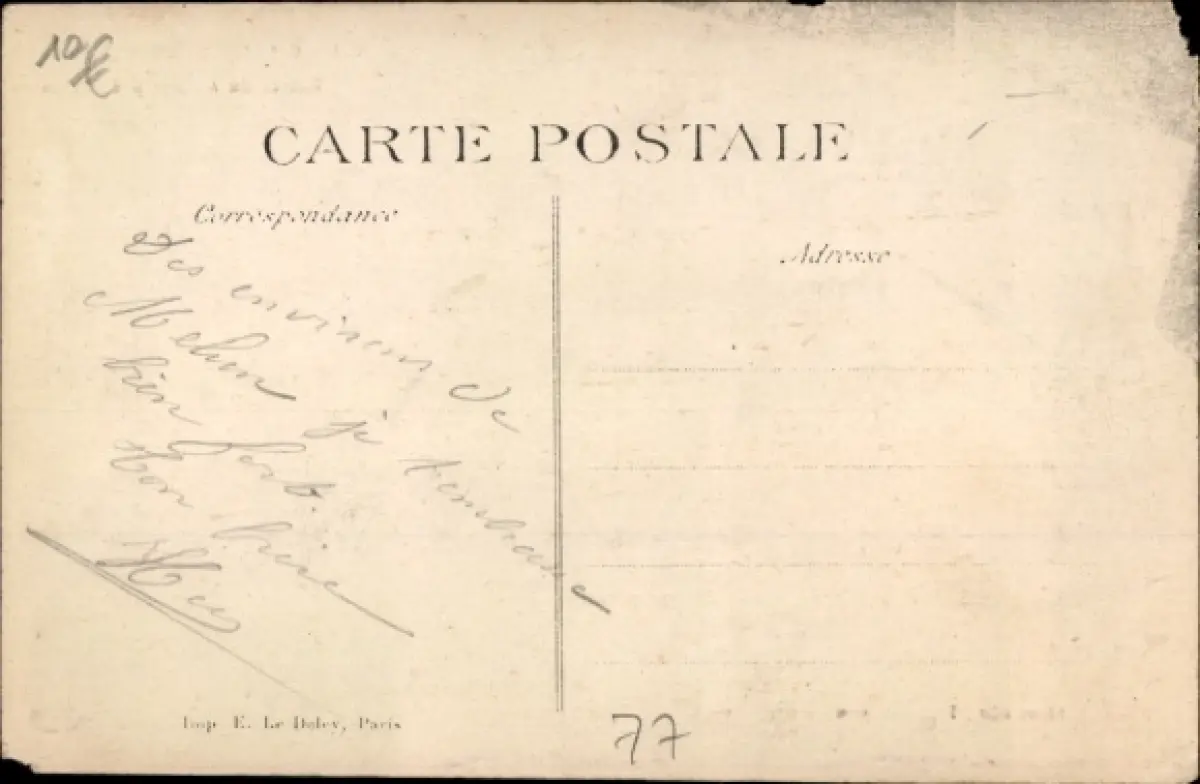 10€
CARTE POSTALE
Correspondance
Adresse
Des environs de
Melun je t'embrasse
bien fort.
Ton
Imp E. Le Deley, Paris
77